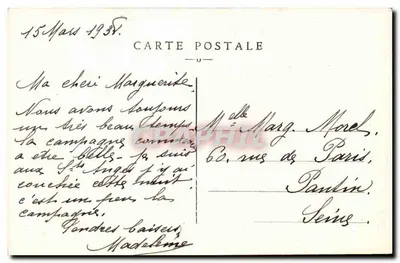 15 Mars 1938.
CARTE POSTALE
Ma cheri Marguerite.
Nous avons toujours
un très beau temps
la campagne commence
a etre belle je suis
aux Stes Anges j'y ai
couchée cette nuit
c'est un peu la
campagne.
Tendres baisers
Madeleine
Melle Marg. Morel.
60. rue de Paris.
Pantin.
Seine.